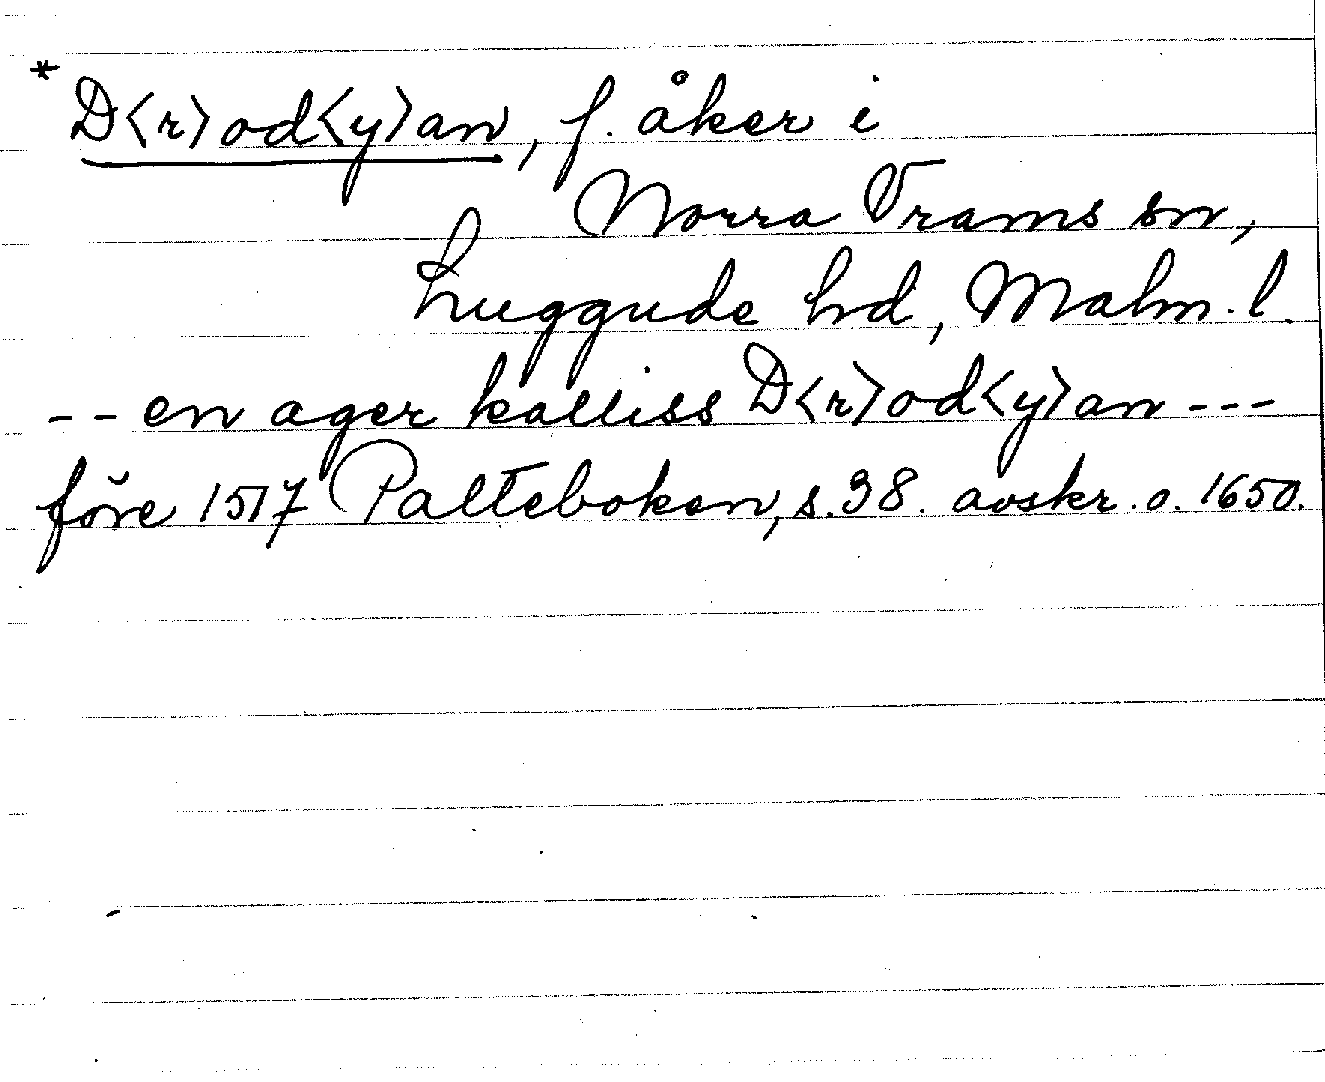 * D<r>od<y>an, f. åker i
Norra Vrams sn,
Luggude hd, Malm. l.
-- en ager kalliss D<r>od<y>an ---
före 1517 Palteboken, s. 38. avskr. o. 1650.